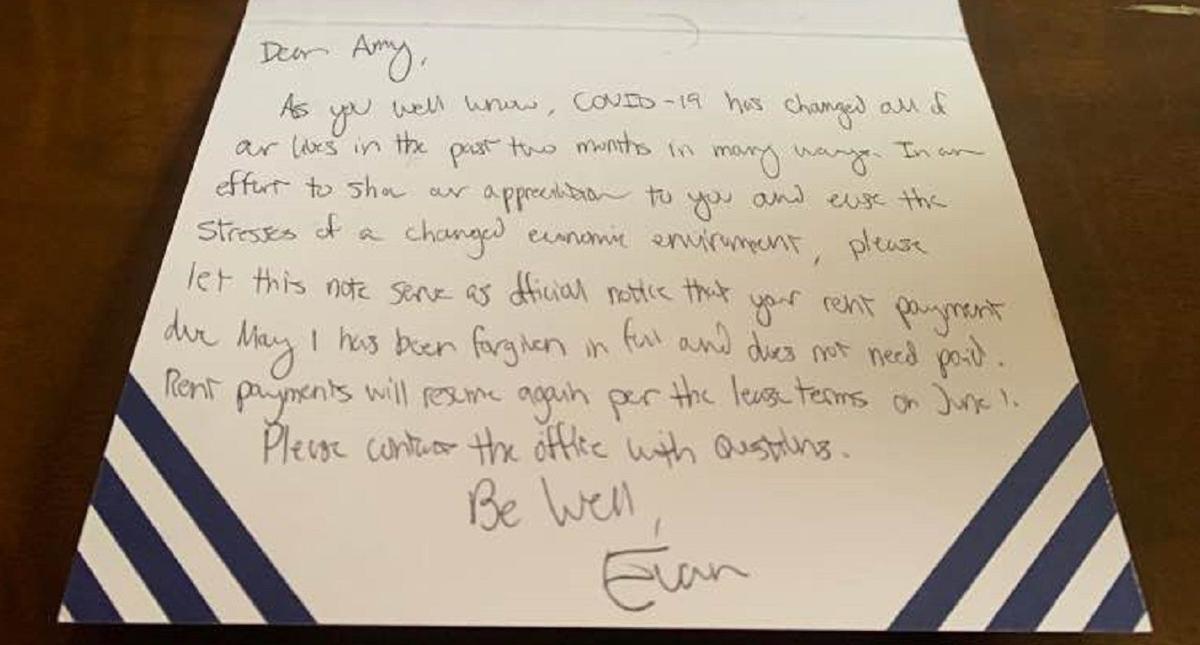 Dear Amy,
As you well know, COVID-19 has changed all of
our lives in the past two months in many ways. In an
effort to show our appreciation to you and ease the
stresses of a changed economic environment, please
let this note serve as official notice that your rent payment
due May 1 has been forgiven in full and does not need paid.
Rent payments will resume again per the lease terms on June 1.
Please contact the office with questions.
Be Well,
Evan